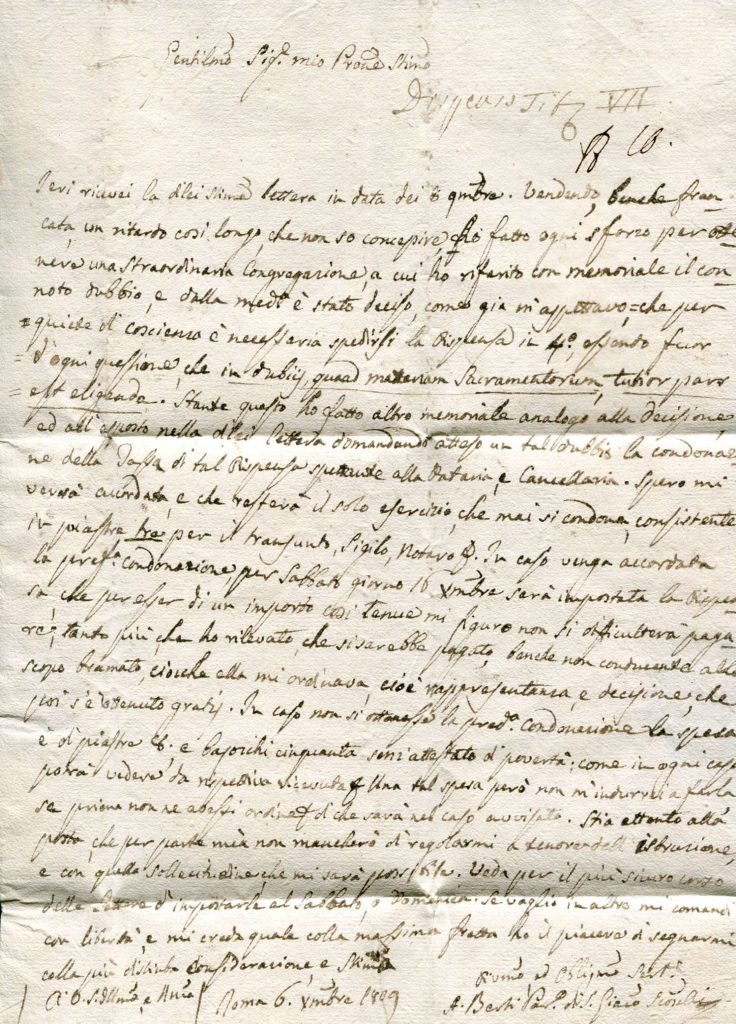 Gentilmo Sigr. mio Prone Stimo
VII
10.
Ieri ricevei la di lei stimā lettera in data dei 8 9mbre. Vendendo, benche fran-
cata, un ritardo così longo, che non so concepire, ho fatto ogni sforzo per otte
nere una straordinaria Congregazione, a cui ho riferito con memoriale il con
noto dubbio, e dalla medā è stato deciso, come già m'aspettavo, =che per
=quiete di coscienza è necesseria spedirsi la Dispensa in 4°. essendo fuor
=d'ogni questione, che in dubijs quoad materiam Sacramentorum, tutior pars
=est eligenda. Stante questo ho fatto altro memoriale analogo alla decisione,
ed all'esposto nella di lei lettera domandando atteso un tal dubbio la condonazio
ne della Tassa di tal Dispensa spettante alla Dataria, e Cancellaria. Spero mi
verrà accordata, e che resterà il solo esercizio, che mai si condona, consistente
in piastre tre per il transunto, Sigilo, Notaro &. In caso venga accordata
la prefa. condonazione, per Sabbato giorno 16 Xmbre sarà impostata la Dispen
sa che per esser di un importo così tenue mi figuro non si difficulterà paga
re, tanto più, che ho rilevato, che si sarebbe pagato, benche non conducente allo
scopo bramato, ciocche ella mi ordinava, cioè rappresentanza, e decisione, che
poi s'è ottenuto gratis. In caso non si ottenesse la preda. Condonazione la spesa
è di piastre 8. e bajocchi cinquanta senz'attestato di povertà; come in ogni caso
potrà vedere da rispettiva ricevuta. Una tal spesa però non m'indurrei a farla
se prima non ne avessi ordine di che sarà nel caso avvisato. Stia attento alla
posta, che per parte mia non mancherò di regolarmi a tenore dell'istruzione,
e con quella sollecitudine che mi sarà possibile. Veda per il più sicuro corso
delle lettere d'impostarle al Sabbato, o Domenica. Se vaglio in altro mi comandi
con libertà e mi creda quale colla massima fretta ho il piacere di segnarmi
colla più distinta Considerazione, e Stima
Roma 6. Xmbre 1809
Divmo ed Obblimo Servr.